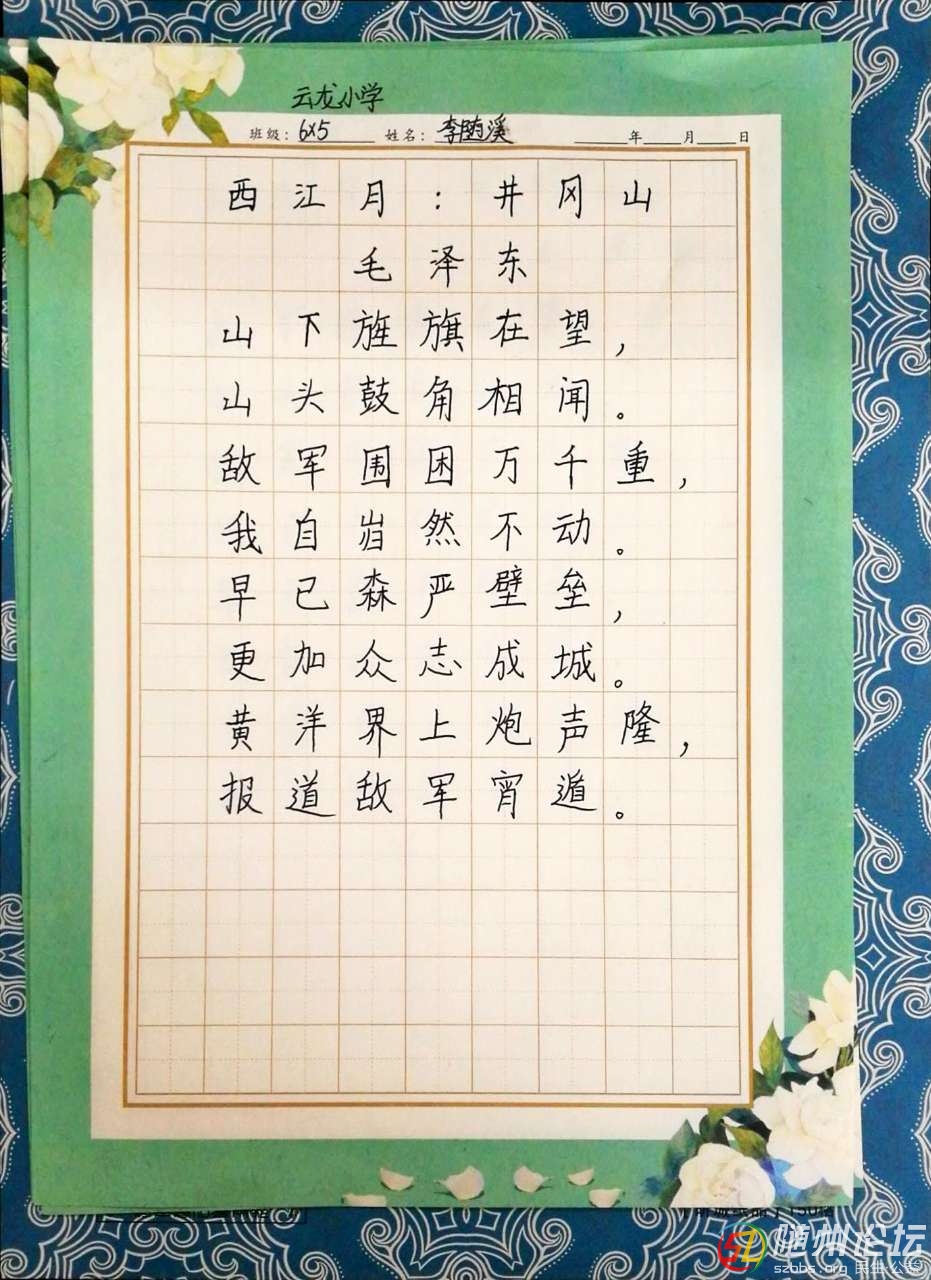 云龙小学
班级：6x5 姓名：李随溪 年 月 日
西江月：井冈山
毛泽东
山下旌旗在望，
山头鼓角相闻。
敌军围困万千重，
我自岿然不动。
早已森严壁垒，
更加众志成城。
黄洋界上炮声隆，
报道敌军宵遁。
随州论坛
szbbs.org 民生·公益